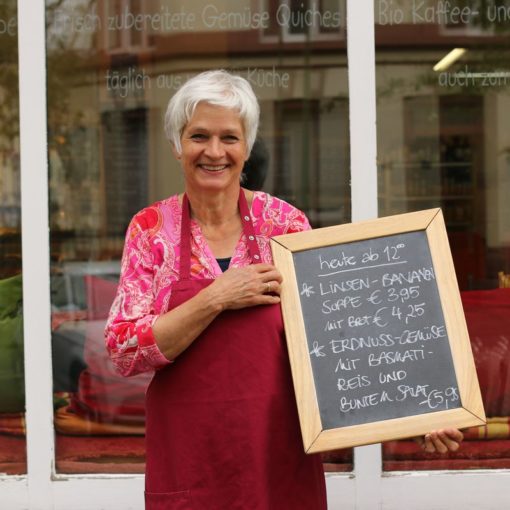 Frisch zubereitete Gemüse Quiches
täglich aus Küche
Bio Kaffee- und
auch zum
heute ab 12⁰⁰
* LINSEN-BANANEN
SUPPE € 3,95
MIT BROT € 4,25
* ERDNUSS-GEMÜSE
MIT BASMATI-
REIS UND
BUNTEM SALAT
-€5,95